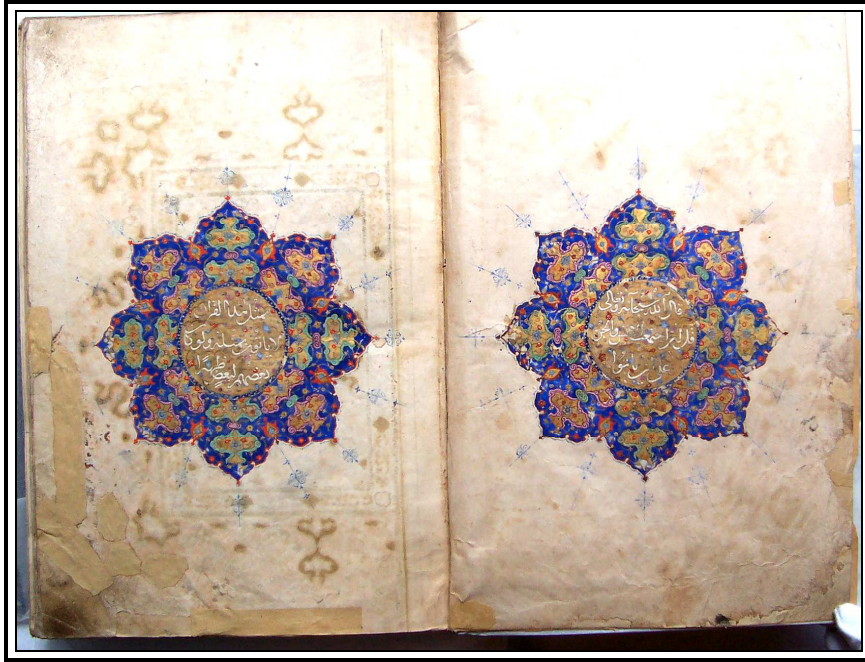 قال الله سبحانه وتعالى
قل لئن اجتمعت الانس والجن
على ان يأتوا
بمثل هذا القرآن
لا يأتون بمثله ولو كان
بعضهم لبعض ظهيرا